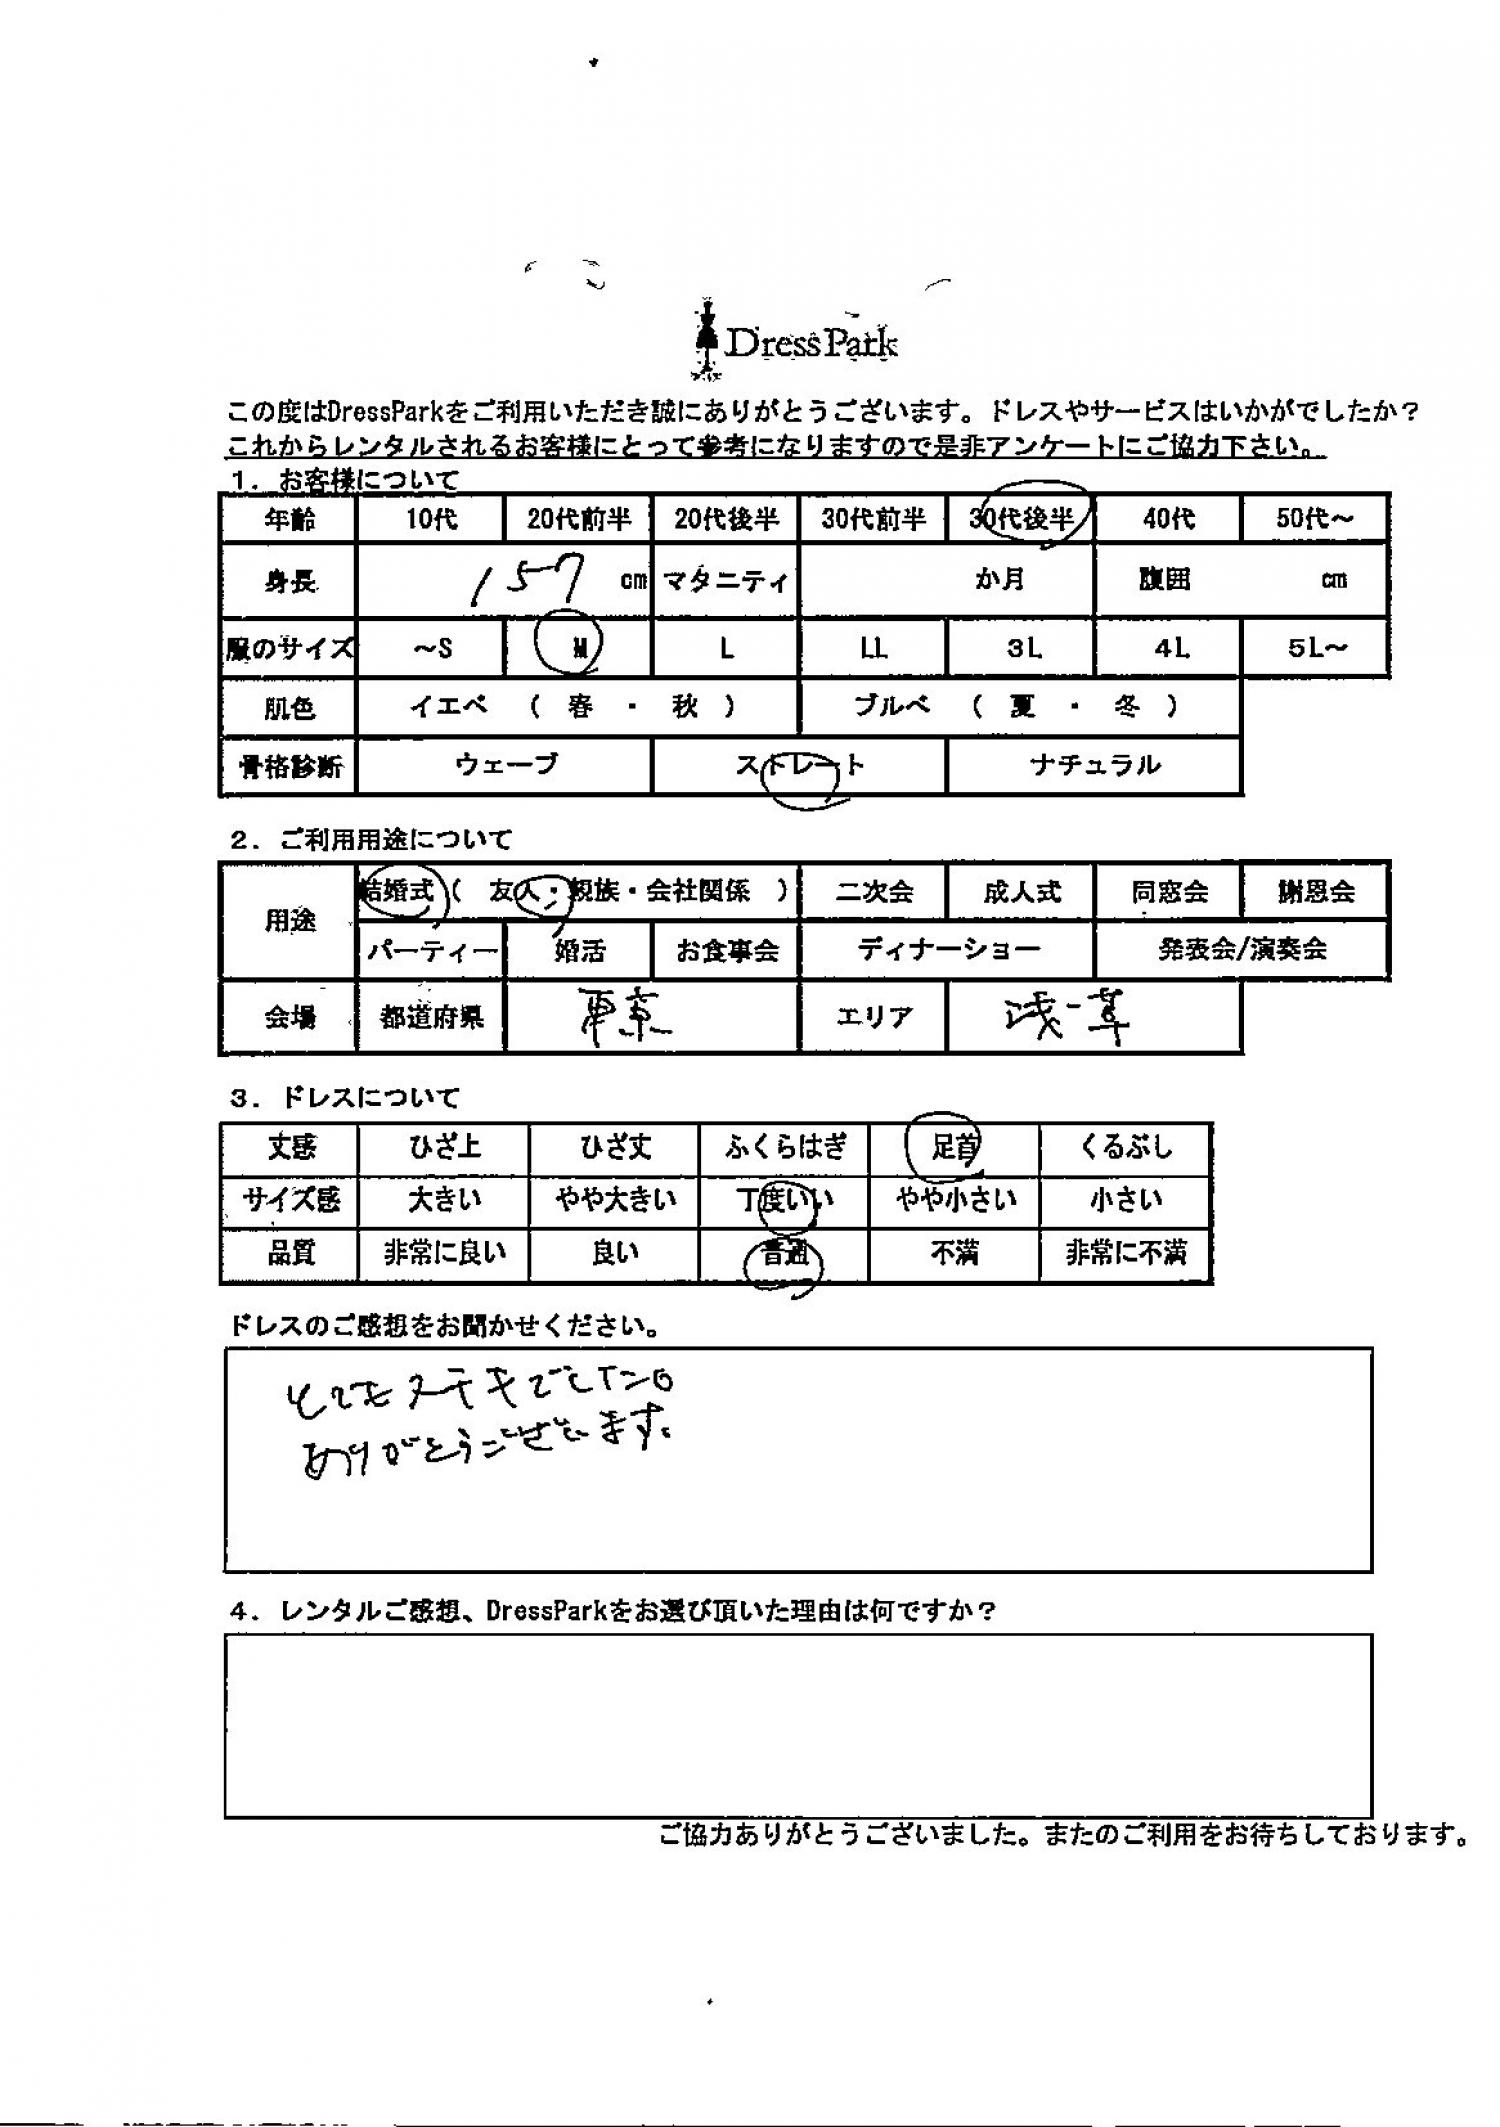 DressPark
この度はDressParkをご利用いただき誠にありがとうございます。ドレスやサービスはいかがでしたか？
これからレンタルされるお客様にとって参考になりますので是非アンケートにご協力下さい。
１．お客様について
年齢 10代 20代前半 20代後半 30代前半 30代後半 40代 50代～
身長 157 cm マタニティ か月 腹囲 cm
服のサイズ ～S M L LL 3L 4L 5L～
肌色 イエベ （ 春 ・ 秋 ） ブルベ （ 夏 ・ 冬 ）
骨格診断 ウェーブ ストレート ナチュラル
２．ご利用用途について
用途 結婚式（ 友人・親族・会社関係 ） 二次会 成人式 同窓会 謝恩会
パーティー 婚活 お食事会 ディナーショー 発表会/演奏会
会場 都道府県 東京 エリア 浅草
３．ドレスについて
丈感 ひざ上 ひざ丈 ふくらはぎ 足首 くるぶし
サイズ感 大きい やや大きい 丁度いい やや小さい 小さい
品質 非常に良い 良い 普通 不満 非常に不満
ドレスのご感想をお聞かせください。
とてもステキでした。
ありがとうございます。
４．レンタルご感想、DressParkをお選び頂いた理由は何ですか？
ご協力ありがとうございました。またのご利用をお待ちしております。